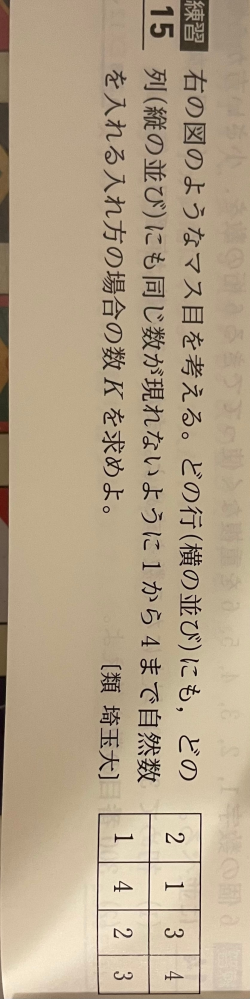 練習
15
右の図のようなマス目を考える。どの行(横の並び)にも，どの
列(縦の並び)にも同じ数が現れないように1から4まで自然数
を入れる入れ方の場合の数Kを求めよ。 〔類 埼玉大〕
2 1 3 4
1 4 2 3